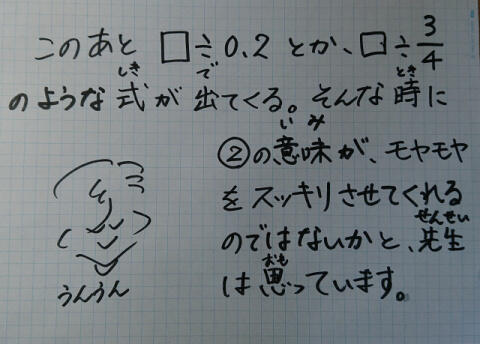 このあと □÷0.2 とか、□÷3/4
のような式が出てくる。そんな時に
しき で とき
②の意味が、モヤモヤ
いみ
をスッキリさせてくれる
のではないかと、先生
せんせい
は思っています。
おも
うんうん